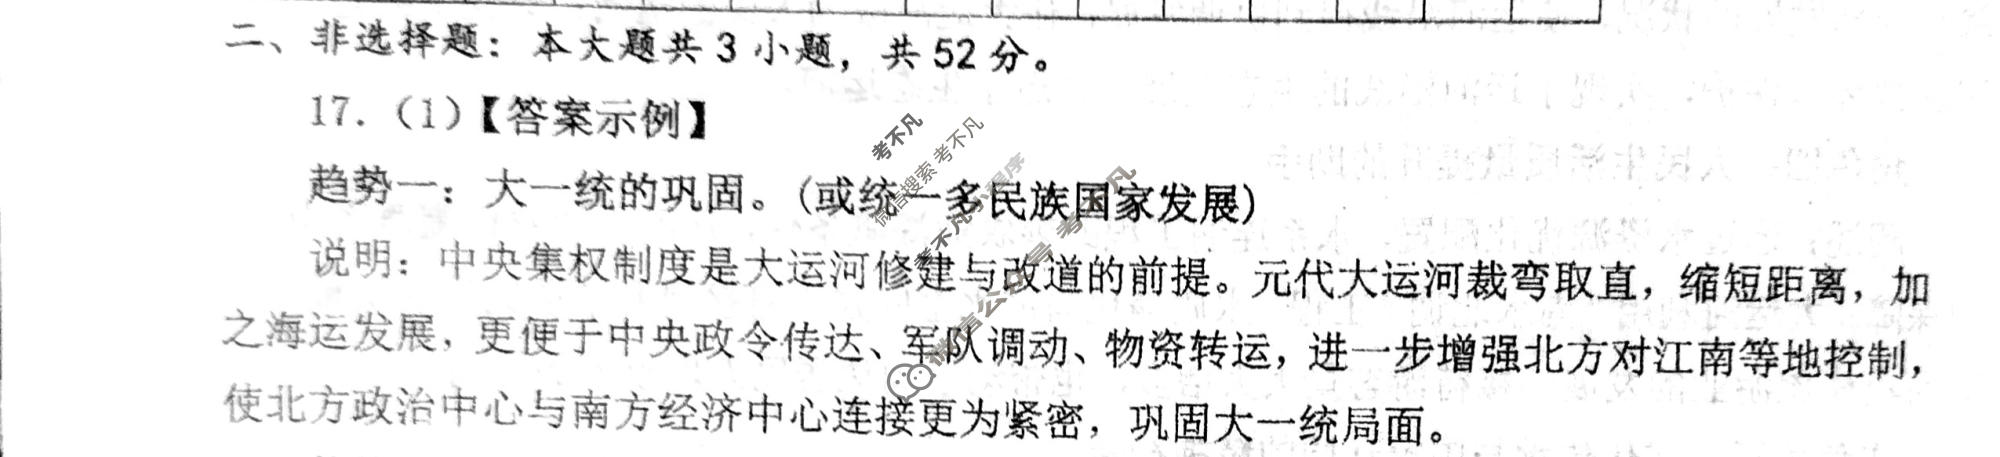 二、非选择题：本大题共3小题，共52分。
17.（1）【答案示例】
趋势一：大一统的巩固。(或统一多民族国家发展)
说明：中央集权制度是大运河修建与改道的前提。元代大运河裁弯取直，缩短距离，加
之海运发展，更便于中央政令传达、军队调动、物资转运，进一步增强北方对江南等地控制，
使北方政治中心与南方经济中心连接更为紧密，巩固大一统局面。
考不凡
微信搜索 考不凡
考不凡小程序
微信公众号 考不凡